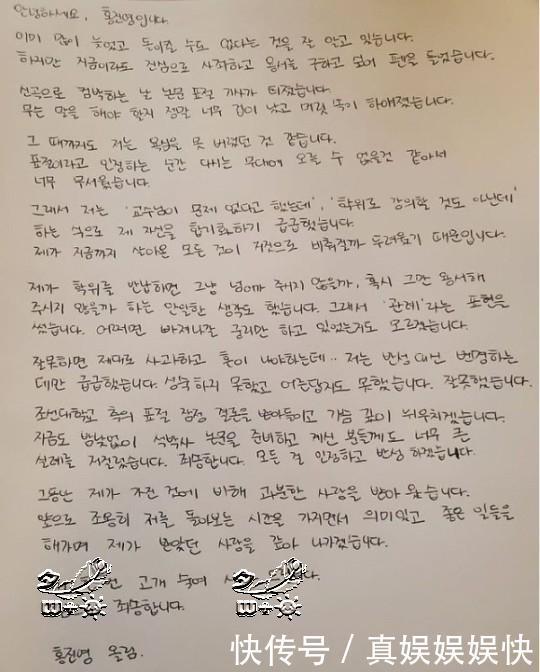 안녕하세요, 홍진영입니다.
이미 많이 늦었고 돌이킬 수도 없다는 것을 잘 알고 있습니다.
하지만 지금이라도 진심으로 사죄하고 용서를 구하고 싶어 펜을 들었습니다.
신곡으로 컴백하는 날 논문 표절 기사가 터졌습니다.
무슨 말을 해야 할지 정말 너무 겁이 났고 머릿 속이 하얘졌습니다.
그 때까지도 저는 욕심을 못 버렸던 것 같습니다.
표절이라고 인정하는 순간 다시는 무대에 오를 수 없을것 같아서
너무 무서웠습니다.
그래서 저는 '교수님이 문제 없다고 했는데', '학위로 강의할 것도 아닌데'
하는 식으로 제 자신을 합리화하기 급급했습니다.
제가 지금까지 살아온 모든 것이 거짓으로 비춰질까 두려웠기 때문입니다.
제가 학위를 반납하면 그냥 넘어가 주시지 않을까, 혹시 그만 용서해
주시지 않을까 하는 안일한 생각도 했습니다. 그래서 '관례'라는 표현을
썼습니다. 어쩌면 빠져나갈 궁리만 하고 있었는지도 모르겠습니다.
잘못하면 제대로 사과하고 혼이 나야하는데.. 저는 반성 대신 변명하는
데만 급급했습니다. 성숙하지 못했고 어른답지도 못했습니다. 잘못했습니다.
조선대학교 측의 표절 잠정 결론을 받아들이고 가슴 깊이 뉘우치겠습니다.
지금도 밤낮없이 석박사 논문을 준비하고 계신 분들께도 너무 큰
실례를 저질렀습니다. 죄송합니다. 모든 걸 인정하고 반성 하겠습니다.
그동안 제가 가진 것에 비해 과분한 사랑을 받아 왔습니다.
앞으로 조용히 저를 돌아보는 시간을 가지면서 의미있고 좋은 일들을
해가며 제가 받았던 사랑을 갚아 나가겠습니다.
번 고개 숙여
죄송합니다.
홍진영 올림.
快传号 / 真娱娱娱快